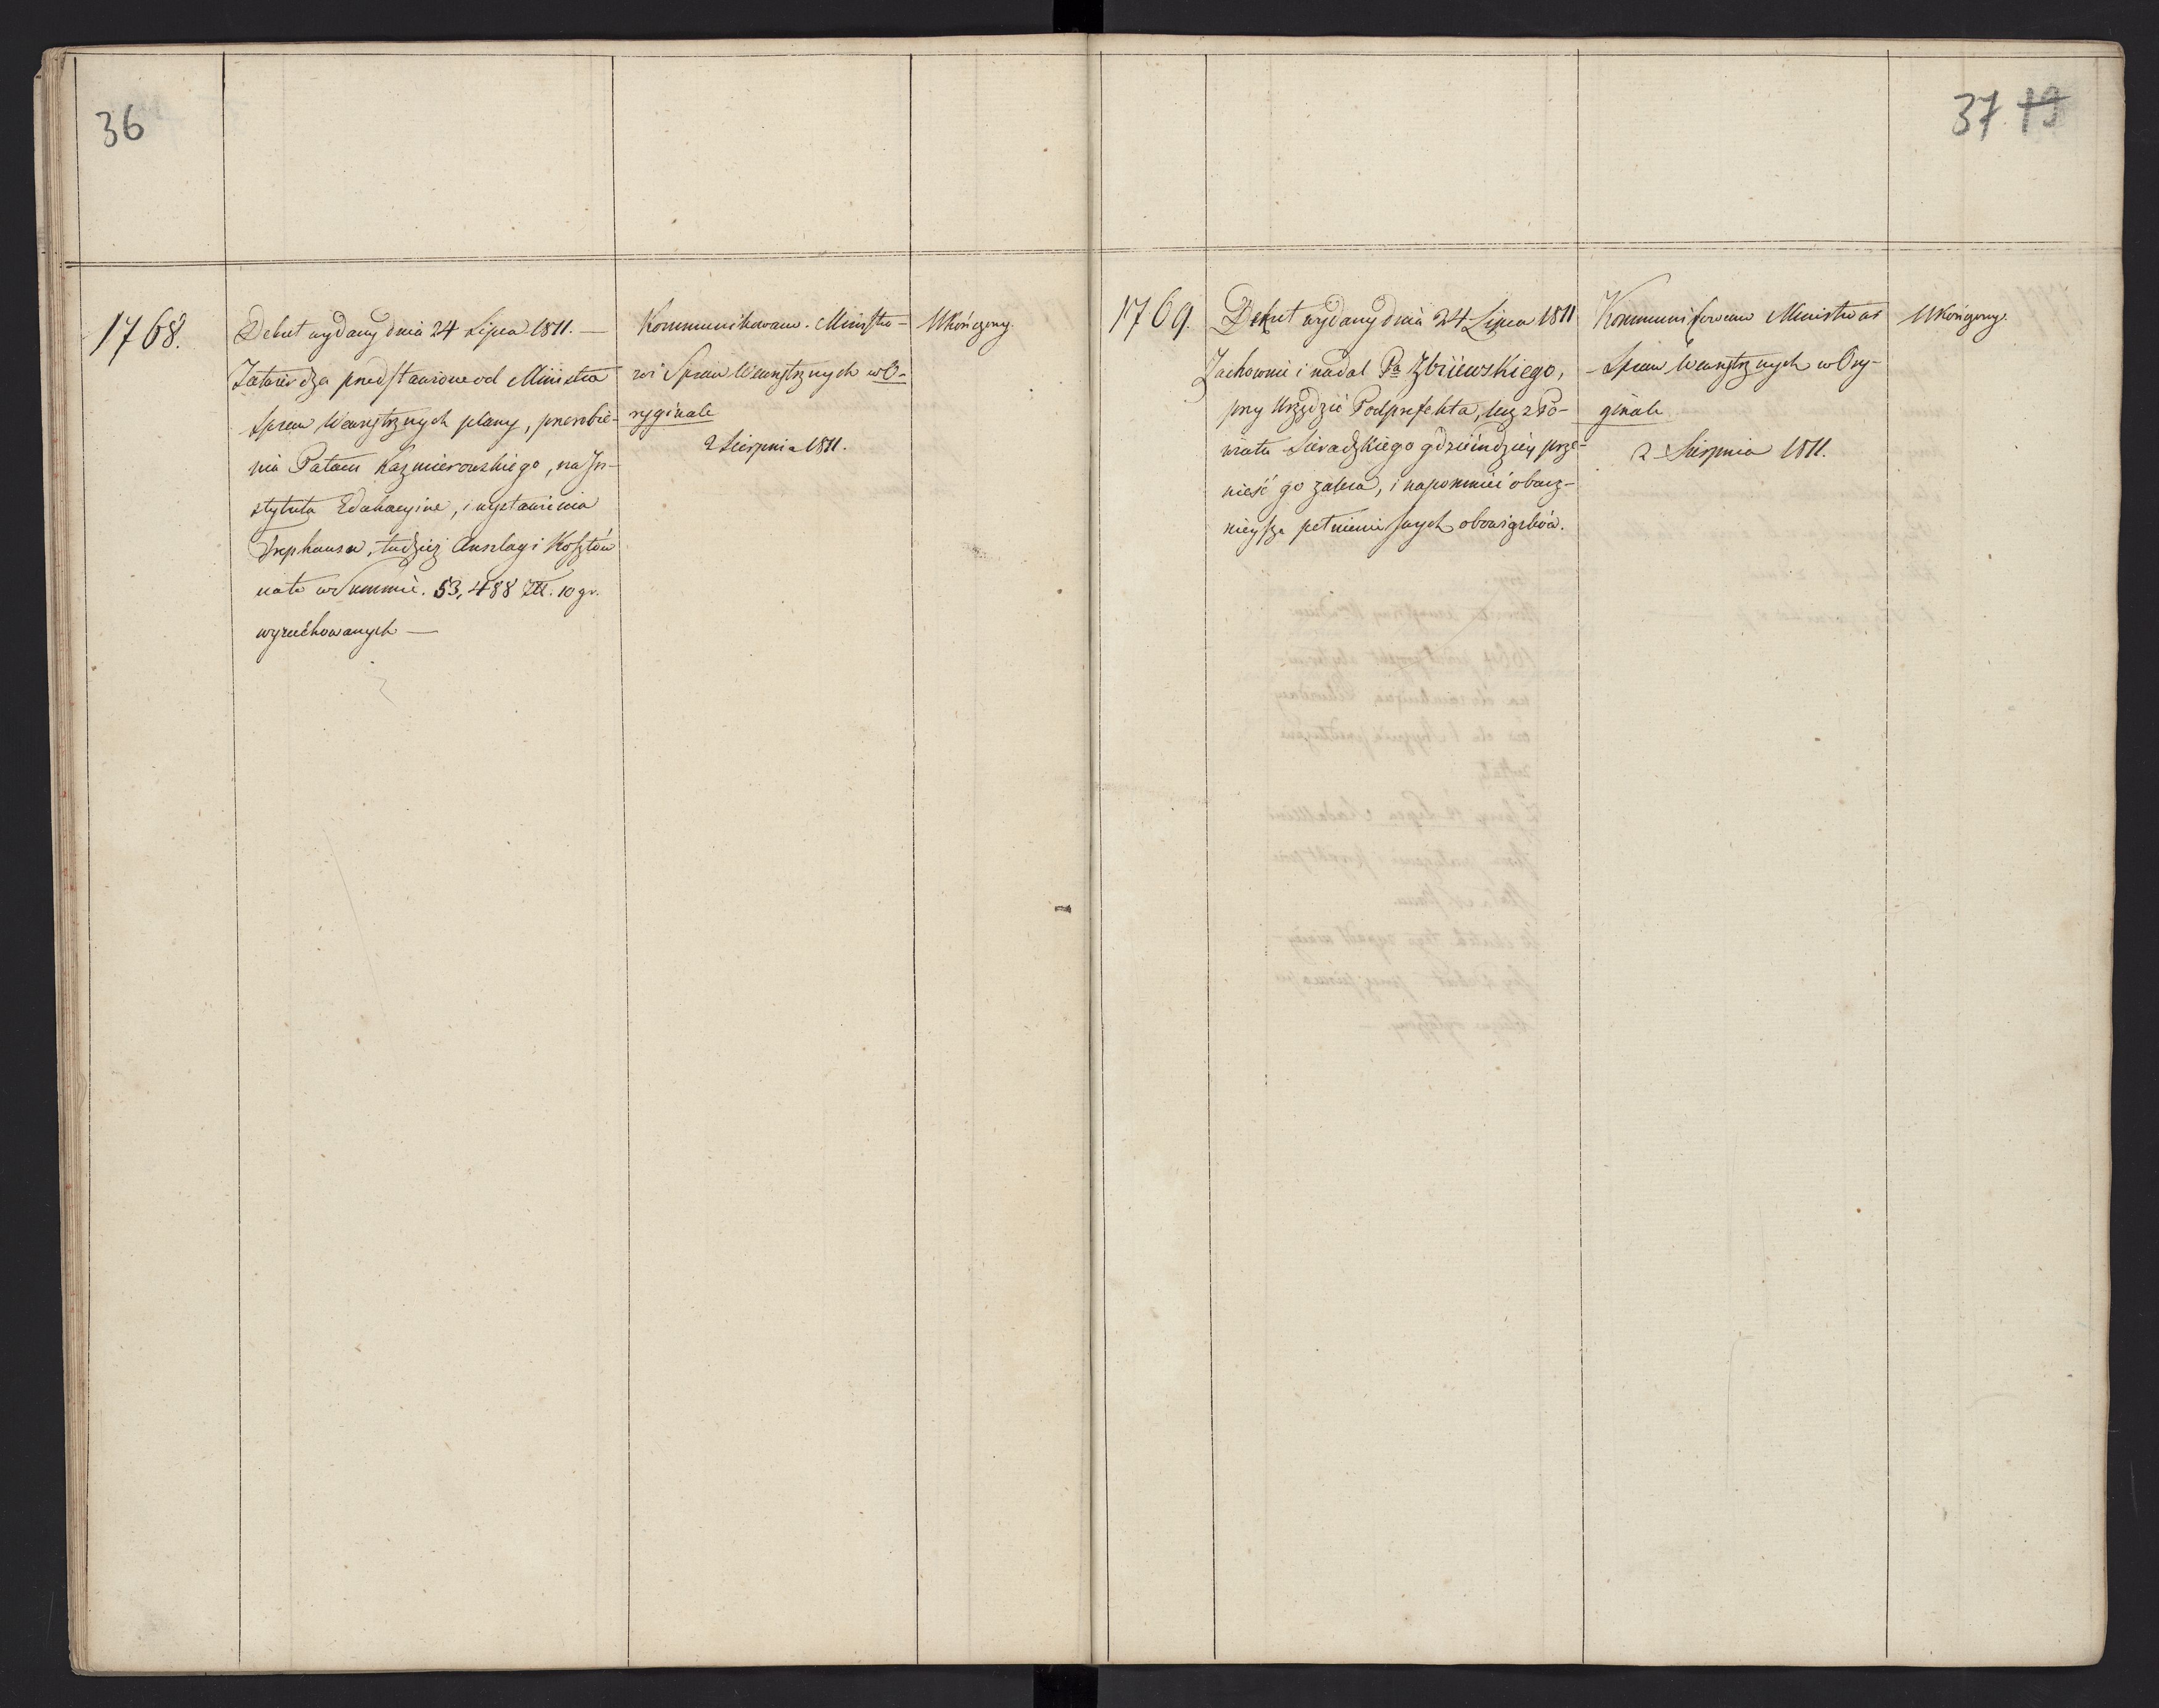 36
1768.
Dekret wydany dnia 24 Lipca 1811. —
Zatwierdza przedstawione od Ministra
Spraw Wewnętrznych plany, przerobie-
nia Pałacu Kazmierowskiego, na In-
stytuta Edukacyine, i wystawienia
Trephausu, tudzież Anszlagi Kosztów
na to w Summie. 53,488 Złł. 10 gr.
wyrachowanych —
Kommunikowano. Ministro-
wi Spraw Wewnętrznych w O-
ryginale
2 Sierpnia 1811.
Ukończony.
37 19
1769.
Dekret wydany dnia 24 Lipca 1811
Zachowuie i nadal Pa Zbiiewskiego,
przy Urzędzie Podprefekta, lecz z Po-
wiatu Sieradzkiego gdzieindziey prze-
nieść go zaleca, i napomnieć o bacz-
nieysze pełnienie swych obowiązków.
Kommunikowano Ministrowi
Spraw Wewnętrznych w Ory-
ginale
2 Sierpnia 1811.
Ukończony.